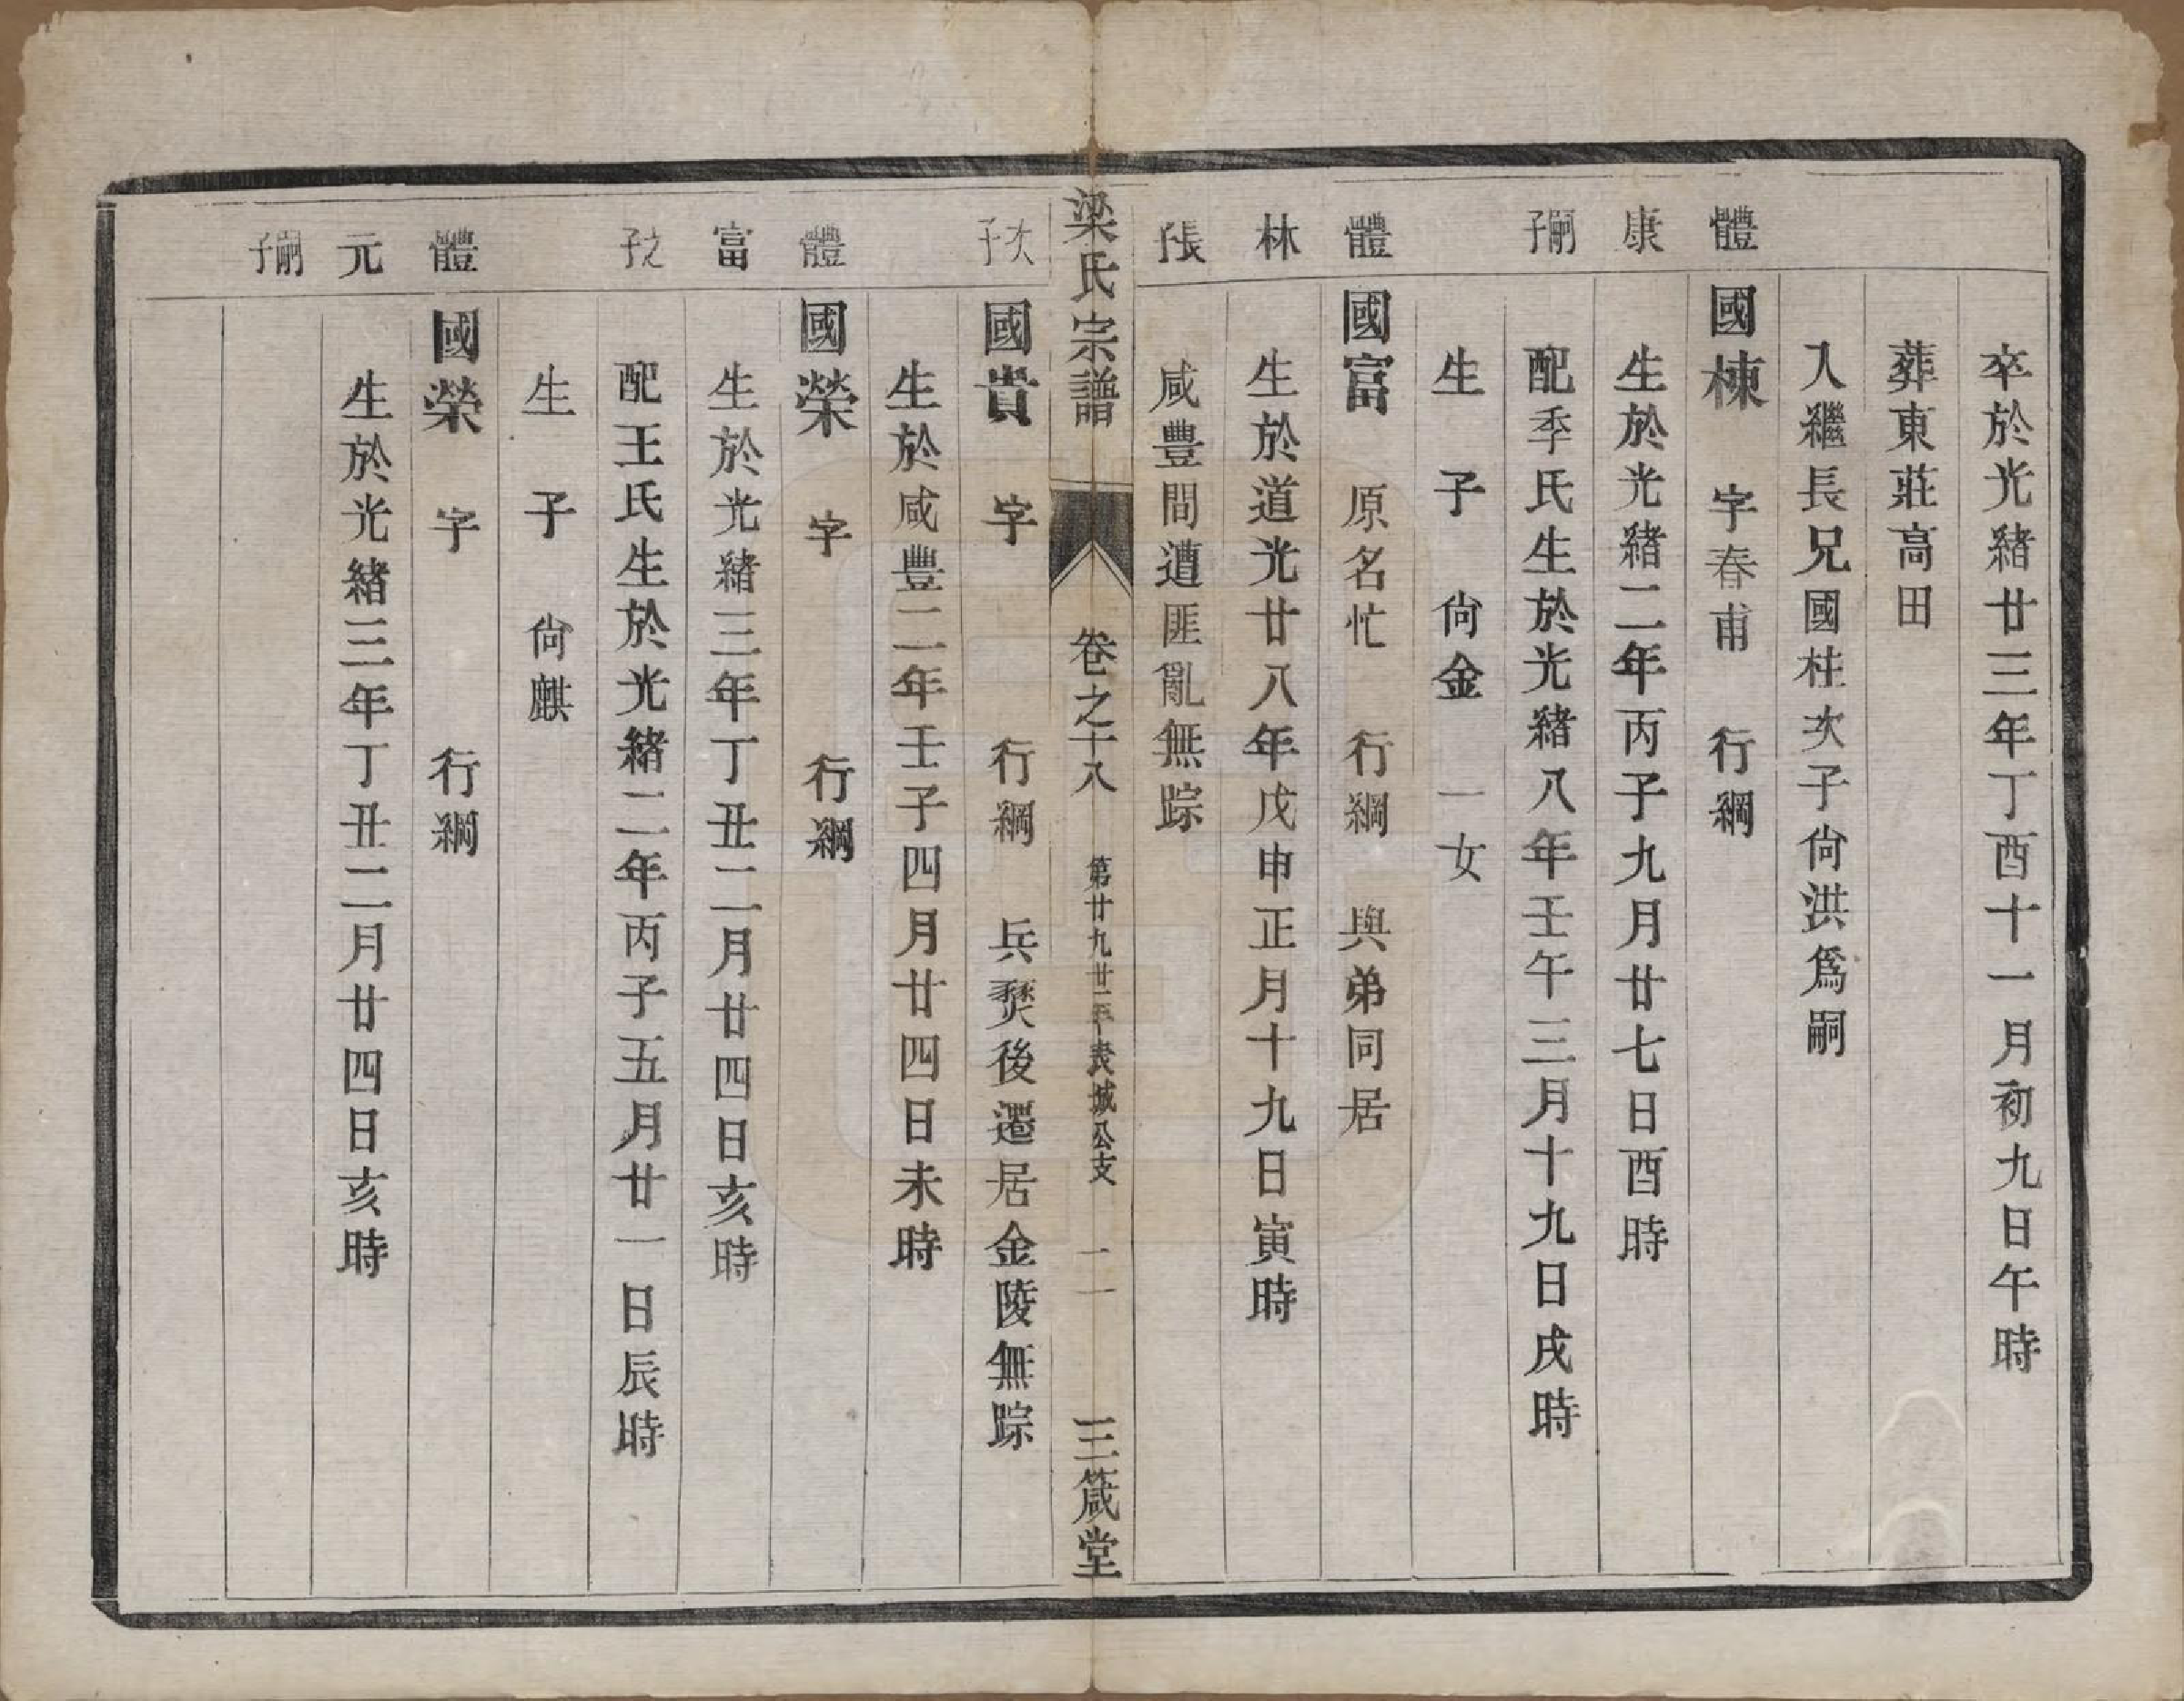 卒於光緒廿三年丁酉十一月初九日午時
葬東莊高田
入繼長兄國柱次子尙洪爲嗣
體 國棟 字春甫 行綱
康 生於光緒二年丙子九月廿七日酉時
嗣子 配季氏生於光緒八年壬午三月十九日戌時
生 子 尙金 一女
體 國富 原名忙 行綱 與弟同居
林 生於道光廿八年戊申正月十九日寅時
長子 咸豐間遭匪亂無踪
梁氏宗譜 卷之十八 第廿九廿二年 公支 二 三箴堂
次子 國貴 字 行綱 兵燹後遷居金陵無踪
生於咸豐二年壬子四月廿四日未時
體 國榮 字 行綱
富 生於光緒三年丁丑二月廿四日亥時
之子 配王氏生於光緒二年丙子五月廿一日辰時
生 子 尙麒
體 國榮 字 行綱
元 生於光緒三年丁丑二月廿四日亥時
嗣子